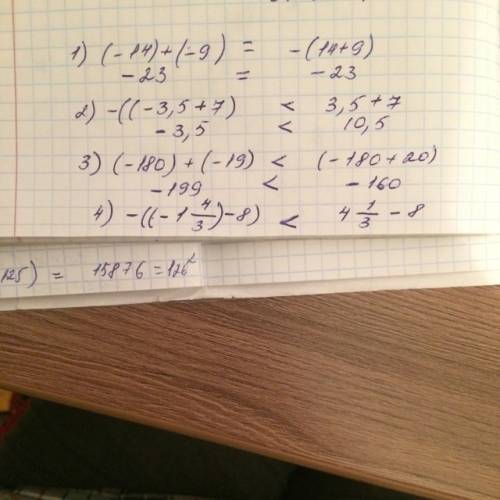 1) (-14)+(-9) = -(14+9)
-23 = -23
2) -((-3,5+7) < 3,5+7
-3,5 < 10,5
3) (-180)+(-19) < (-180+20)
-199 < -160
4) -((-1 4/3)-8) < 4 1/3 - 8
125) = 15876 = 126²